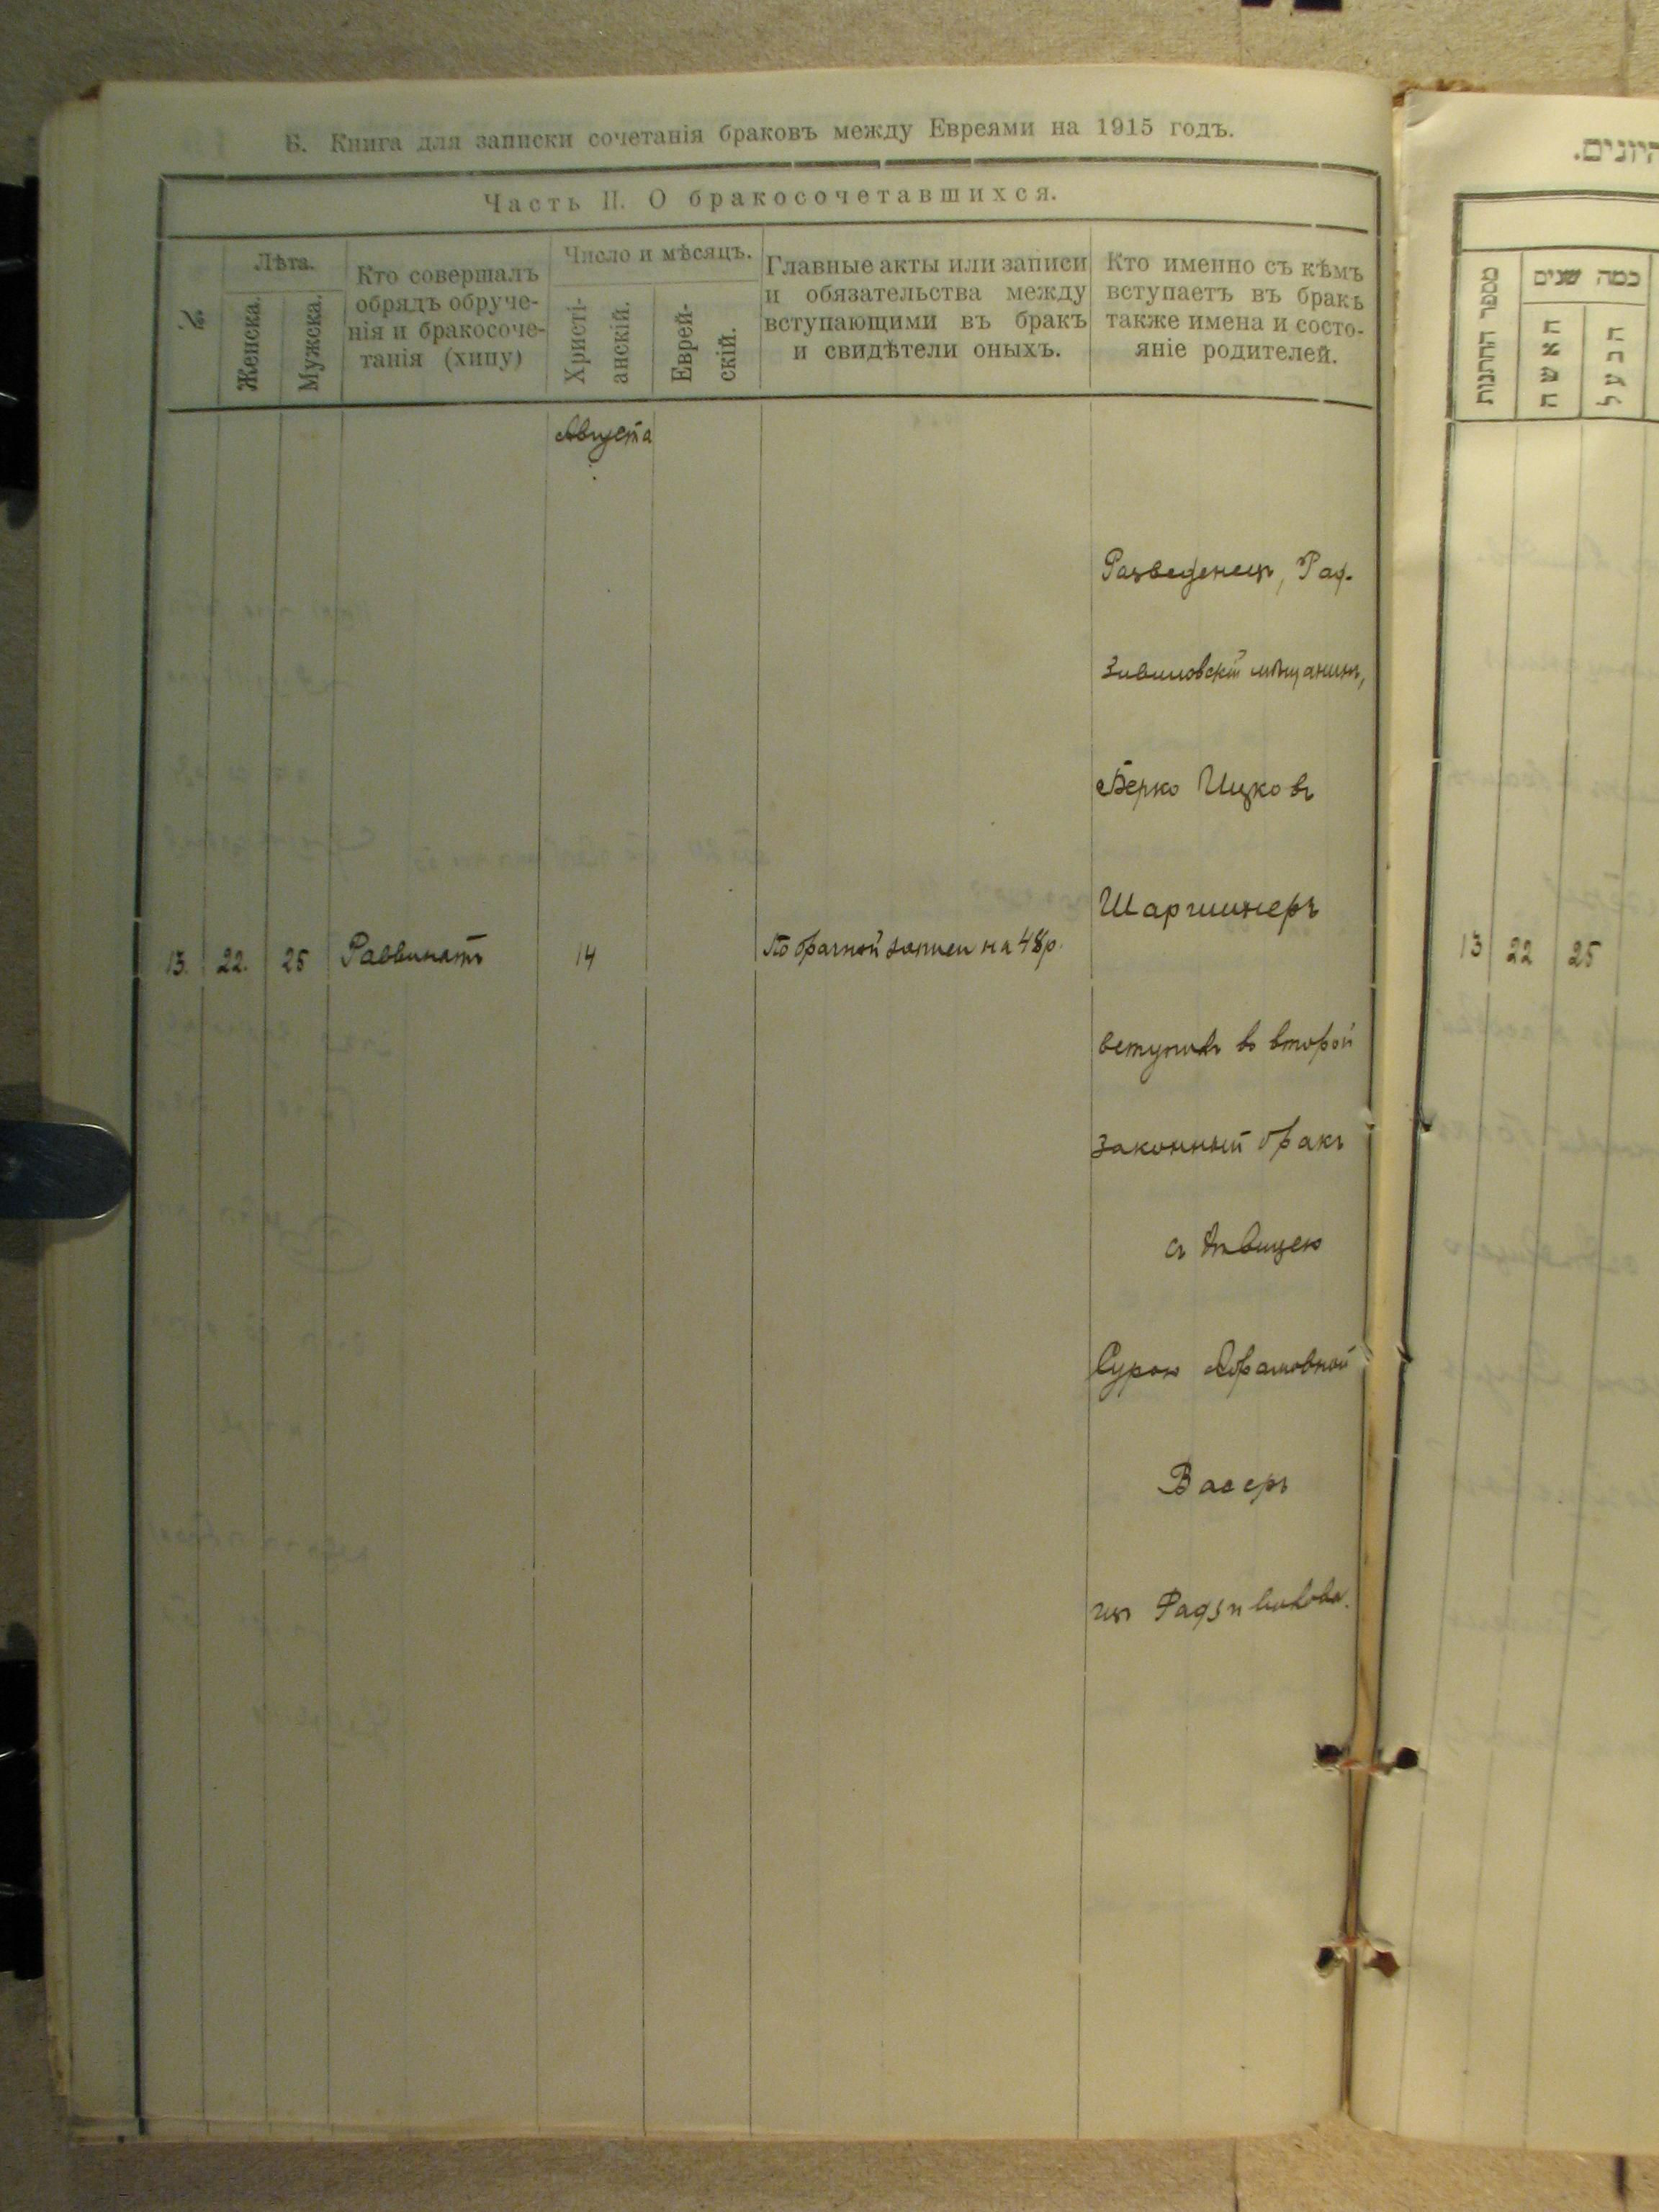 Б. Книга для записки сочетанія браковъ между Евреями на 1915 годъ.
Часть II. О бракосочетавшихся.
№
Лѣта.
Женска.
Мужска.
Кто совершалъ
обрядъ обруче-
нія и бракосоче-
танія (хипу)
Число и мѣсяцъ.
Христі-
анскій.
Еврей-
скій.
Главные акты или записи
и обязательства между
вступающими въ бракъ
и свидѣтели оныхъ.
Кто именно съ кѣмъ
вступаетъ въ бракъ
также имена и состо-
яніе родителей.
Августа
Разведенецъ, Рад-
зивиловскій мѣщанинъ,
Берко Ицковъ
Шаргинеръ
13. 22. 25 Раввинатъ 14 По брачной записи на 48 р.
вступилъ во второй
законный бракъ
съ дѣвицею
Сурою Абрамовной
Васеръ
изъ Радзивилова.
היונים.
מספר החתונות
כמה שנים
האשה
הבעל
13 22 25